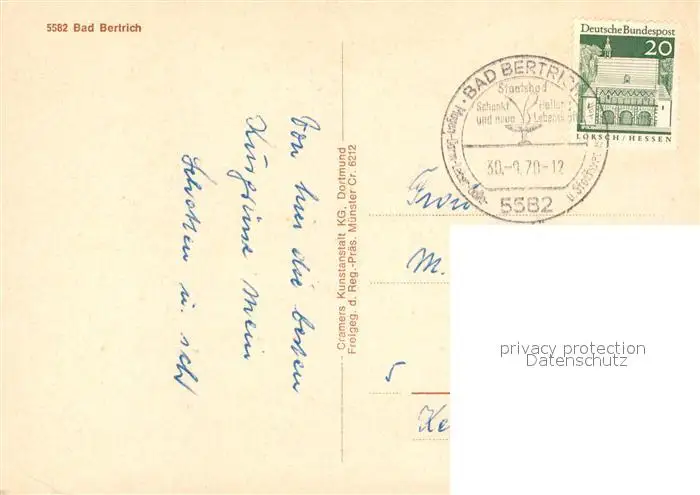 5582 Bad Bertrich
Von hier die besten
Kurgrüsse Mein
Schatten u. ich
Cramers Kunstanstalt KG. Dortmund
Freigeg. d. Reg.-Präs. Münster Cr. 6212
Deutsche Bundespost
20
LORSCH/HESSEN
BAD BERTRICH
Staatsbad
Schenkt Heilung
und neue
30.-9.70-12
5582
Frau
M.
5
Ke
privacy protection
Datenschutz